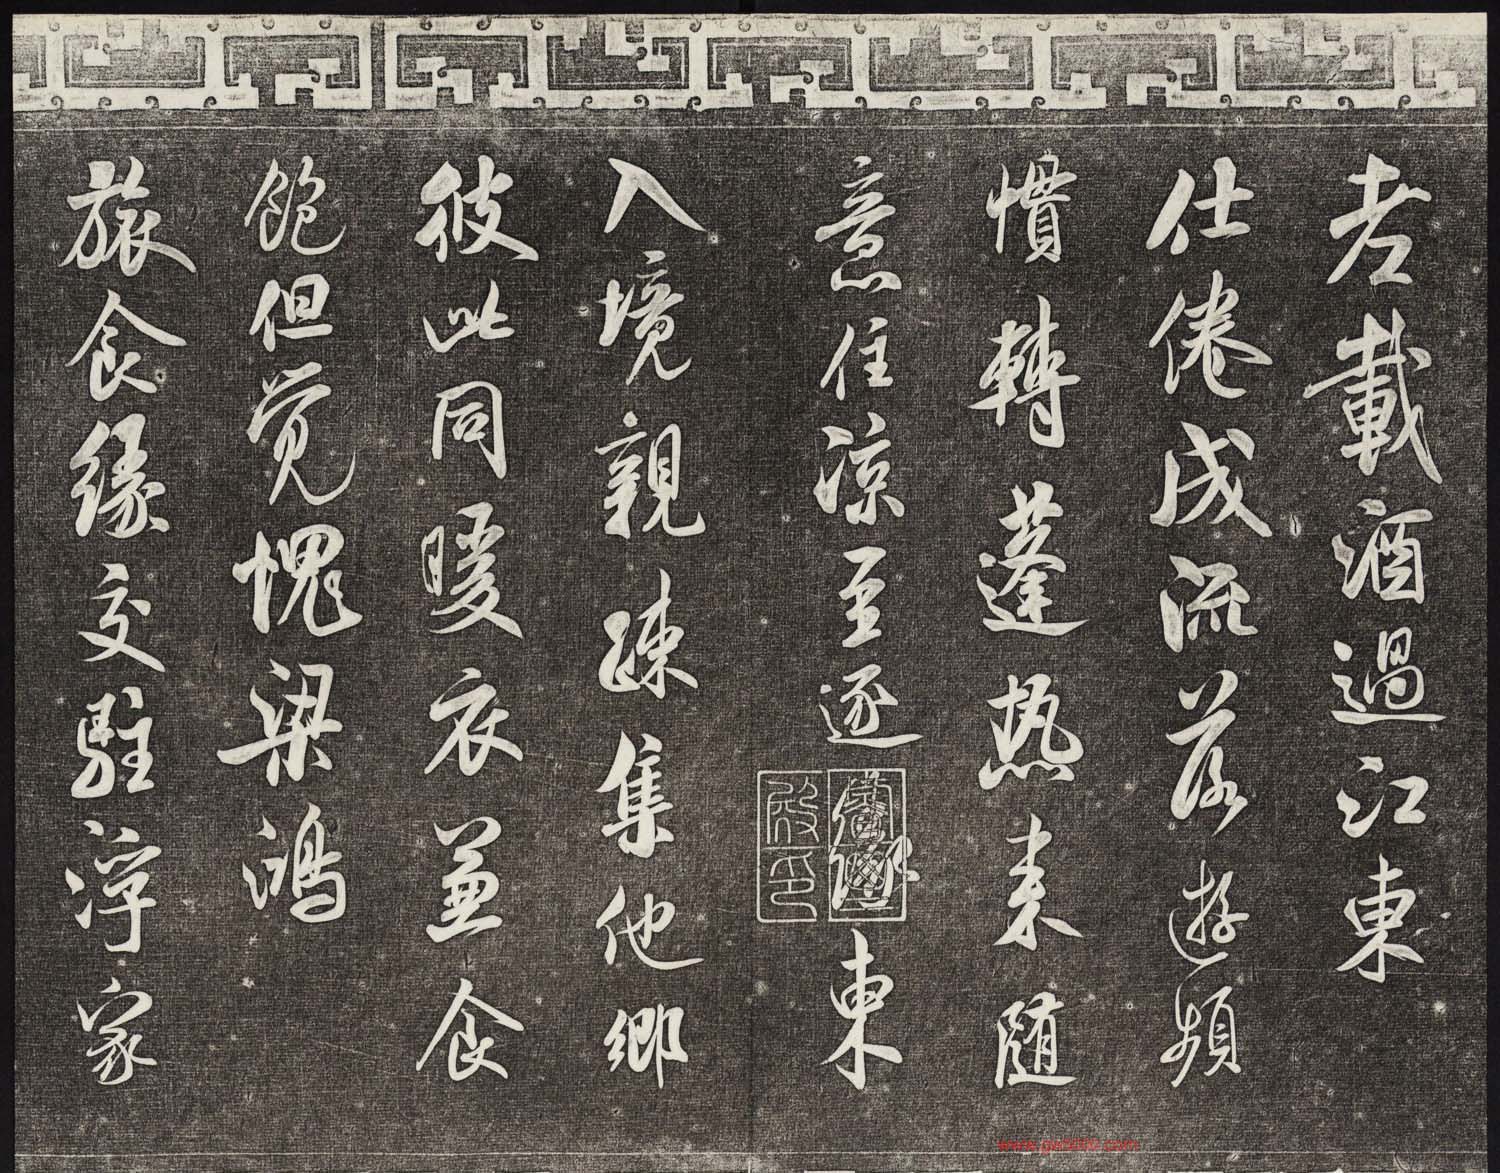 老載酒過江東
仕倦成流落遊頻
慣轉蓬热来随
意住凉至逐東
入境親疎集他鄉
彼此同暖衣兼食
飽但覺愧梁鴻
旅食緣交駐浮家